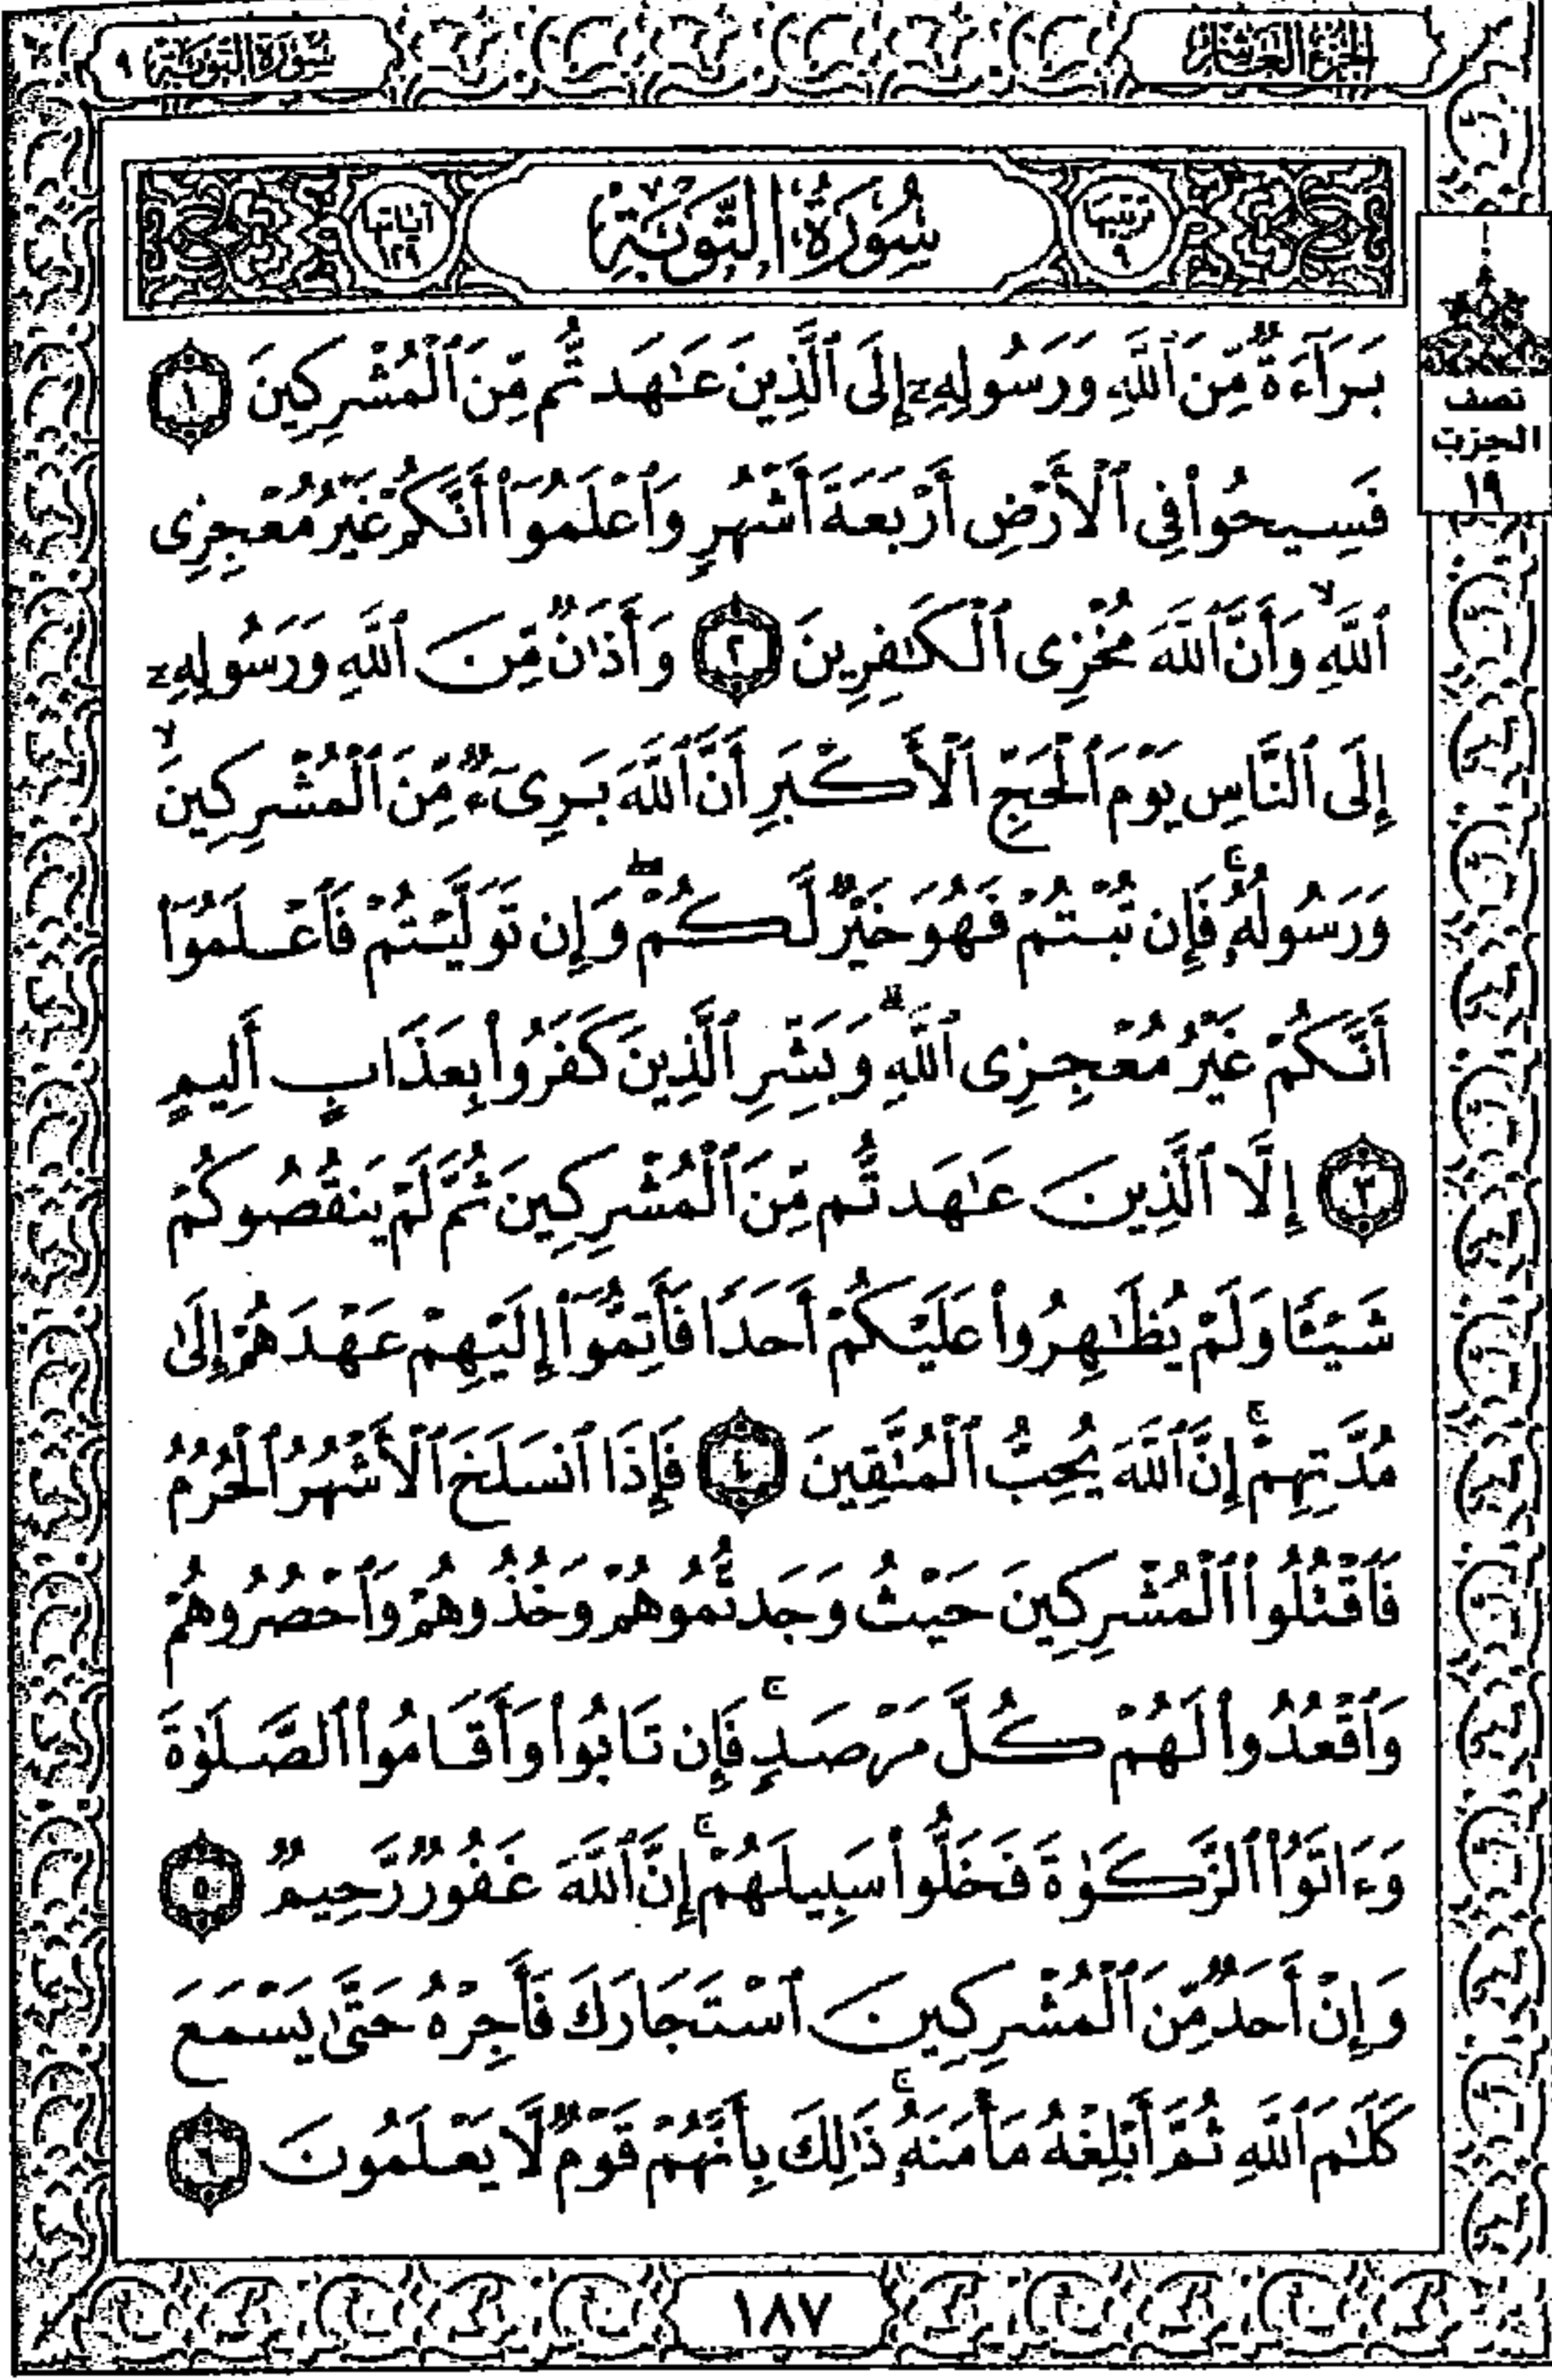 الجزء العاشر
سورة التوبة ٩
ترتيبها ٩
سُورَةُ التَّوْبَةِ
آياتها ١٢٩
نصف الحزب ١٩
بَرَآءَةٌ مِّنَ ٱللَّهِ وَرَسُولِهِۦٓ إِلَى ٱلَّذِينَ عَٰهَدتُّم مِّنَ ٱلْمُشْرِكِينَ ١
فَسِيحُوا۟ فِى ٱلْأَرْضِ أَرْبَعَةَ أَشْهُرٍ وَٱعْلَمُوٓا۟ أَنَّكُمْ غَيْرُ مُعْجِزِى
ٱللَّهِ ۙ وَأَنَّ ٱللَّهَ مُخْزِى ٱلْكَٰفِرِينَ ٢ وَأَذَٰنٌ مِّنَ ٱللَّهِ وَرَسُولِهِۦٓ
إِلَى ٱلنَّاسِ يَوْمَ ٱلْحَجِّ ٱلْأَكْبَرِ أَنَّ ٱللَّهَ بَرِىٓءٌ مِّنَ ٱلْمُشْرِكِينَ ۙ
وَرَسُولُهُۥ ۚ فَإِن تُبْتُمْ فَهُوَ خَيْرٌ لَّكُمْ ۖ وَإِن تَوَلَّيْتُمْ فَٱعْلَمُوٓا۟
أَنَّكُمْ غَيْرُ مُعْجِزِى ٱللَّهِ ۗ وَبَشِّرِ ٱلَّذِينَ كَفَرُوا۟ بِعَذَابٍ أَلِيمٍ
٣ إِلَّا ٱلَّذِينَ عَٰهَدتُّم مِّنَ ٱلْمُشْرِكِينَ ثُمَّ لَمْ يَنقُصُوكُمْ
شَيْـًٔا وَلَمْ يُظَٰهِرُوا۟ عَلَيْكُمْ أَحَدًا فَأَتِمُّوٓا۟ إِلَيْهِمْ عَهْدَهُمْ إِلَىٰ
مُدَّتِهِمْ ۚ إِنَّ ٱللَّهَ يُحِبُّ ٱلْمُتَّقِينَ ٤ فَإِذَا ٱنسَلَخَ ٱلْأَشْهُرُ ٱلْحُرُمُ
فَٱقْتُلُوا۟ ٱلْمُشْرِكِينَ حَيْثُ وَجَدتُّمُوهُمْ وَخُذُوهُمْ وَٱحْصُرُوهُمْ
وَٱقْعُدُوا۟ لَهُمْ كُلَّ مَرْصَدٍ ۚ فَإِن تَابُوا۟ وَأَقَامُوا۟ ٱلصَّلَوٰةَ
وَءَاتَوُا۟ ٱلزَّكَوٰةَ فَخَلُّوا۟ سَبِيلَهُمْ ۚ إِنَّ ٱللَّهَ غَفُورٌ رَّحِيمٌ ٥
وَإِنْ أَحَدٌ مِّنَ ٱلْمُشْرِكِينَ ٱسْتَجَارَكَ فَأَجِرْهُ حَتَّىٰ يَسْمَعَ
كَلَٰمَ ٱللَّهِ ثُمَّ أَبْلِغْهُ مَأْمَنَهُۥ ۚ ذَٰلِكَ بِأَنَّهُمْ قَوْمٌ لَّا يَعْلَمُونَ ٦
١٨٧